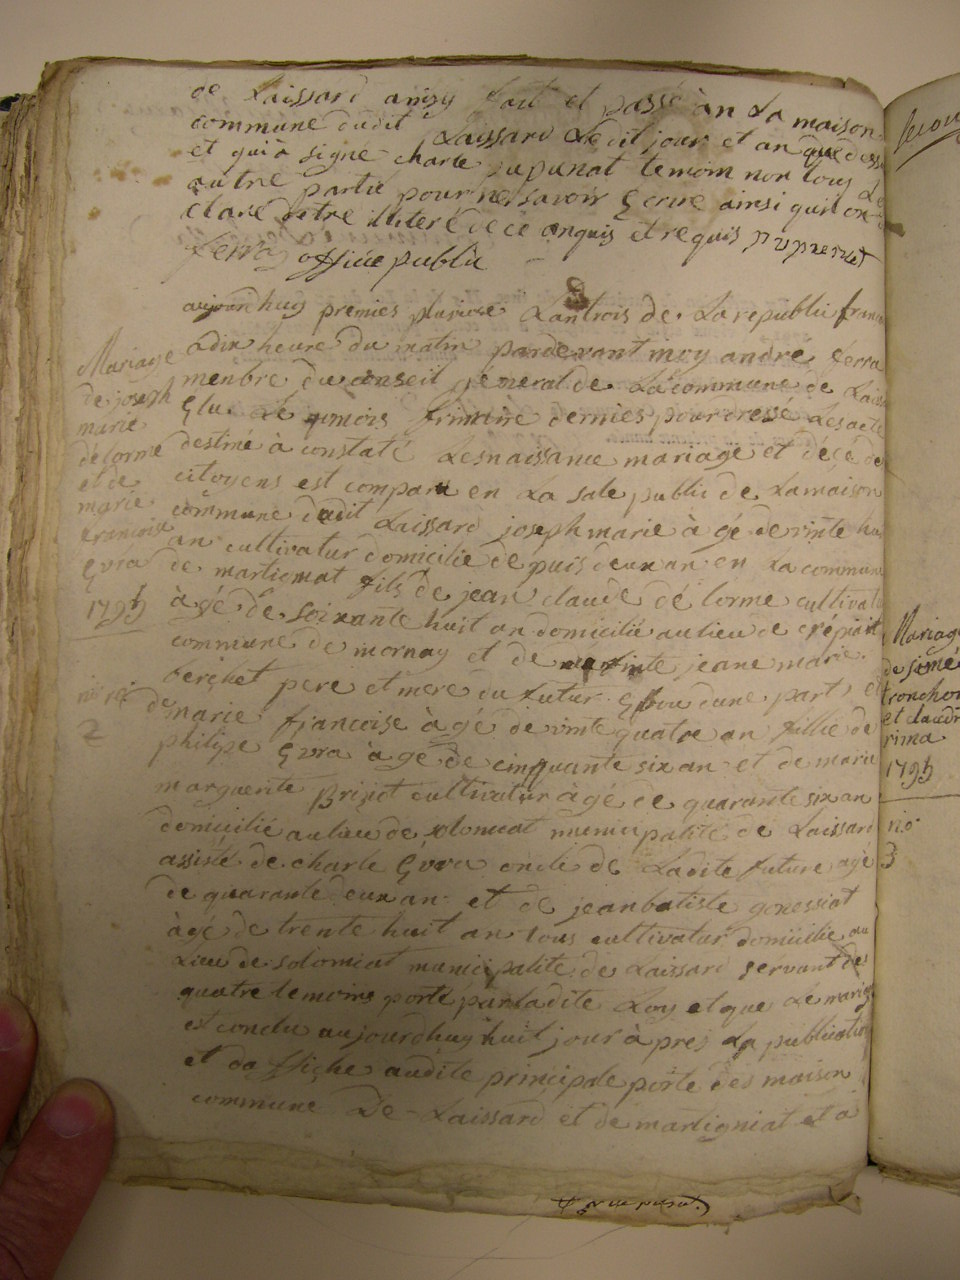 de Laissard ainsy fait et passé àn La maison
commune dudit Laissard Ledit jour et an que dess
et quià signé charle pupunat temoin non tous Le
autre partie pour ne savoir Ecrire ainsi quil on de
claré detre illiteré de ce anquis et requis pupunat
ferra officie public
aujourdhuy premies pluviose Lantrois de La republic franc
adix heure du matin pardevant moy andre ferra
menbre du conseil général de La commune de Laiss
Elu Le mois frimaire dernies pour dressé Les acte
destiné à constaté Les naissance mariage et décé de
citoyens est comparu en La sale public de Lamaison
commune dudit Laissard joseph marie à gé de vinte hui
an cultivatur domicilié de puis deux an en La commune
de martignat fils de jean claude dé Lorme cultivat
à gé de soixante huit an domicilié au lieu de crépiat
commune de mornay et de jeane marie
berchet pere et mere du futur Epou dune part, et
de marie françoise àgé de vinte quatre an fillie de
philipe Evra àgé de cinquante six an et de marie
marguerite cultivatur àgé de quarante six an
domicilié au lieu de solomiat municipalité de Laissard
assisté de charle Evra oncle de Ladite future agé
de quarante deux an et de jean batiste gonessiat
àgé de trente huit an tous cultivatur domicillié au
Lieu de solomiat municipalité de Laissard servant des
quatre temoins porté par ladite Loy et que Le mariage
est conclu aujourdhuy huit jour à pres La publication
et daffiche audite principale porte des maison
commune De Laissard et de martigniat et à
Mariage
de joseph
marie
délorme
et de
marie
françoise
Evra
1795
2
Mariag
de simé
tronchon
et claudi
rima
1795
no
3